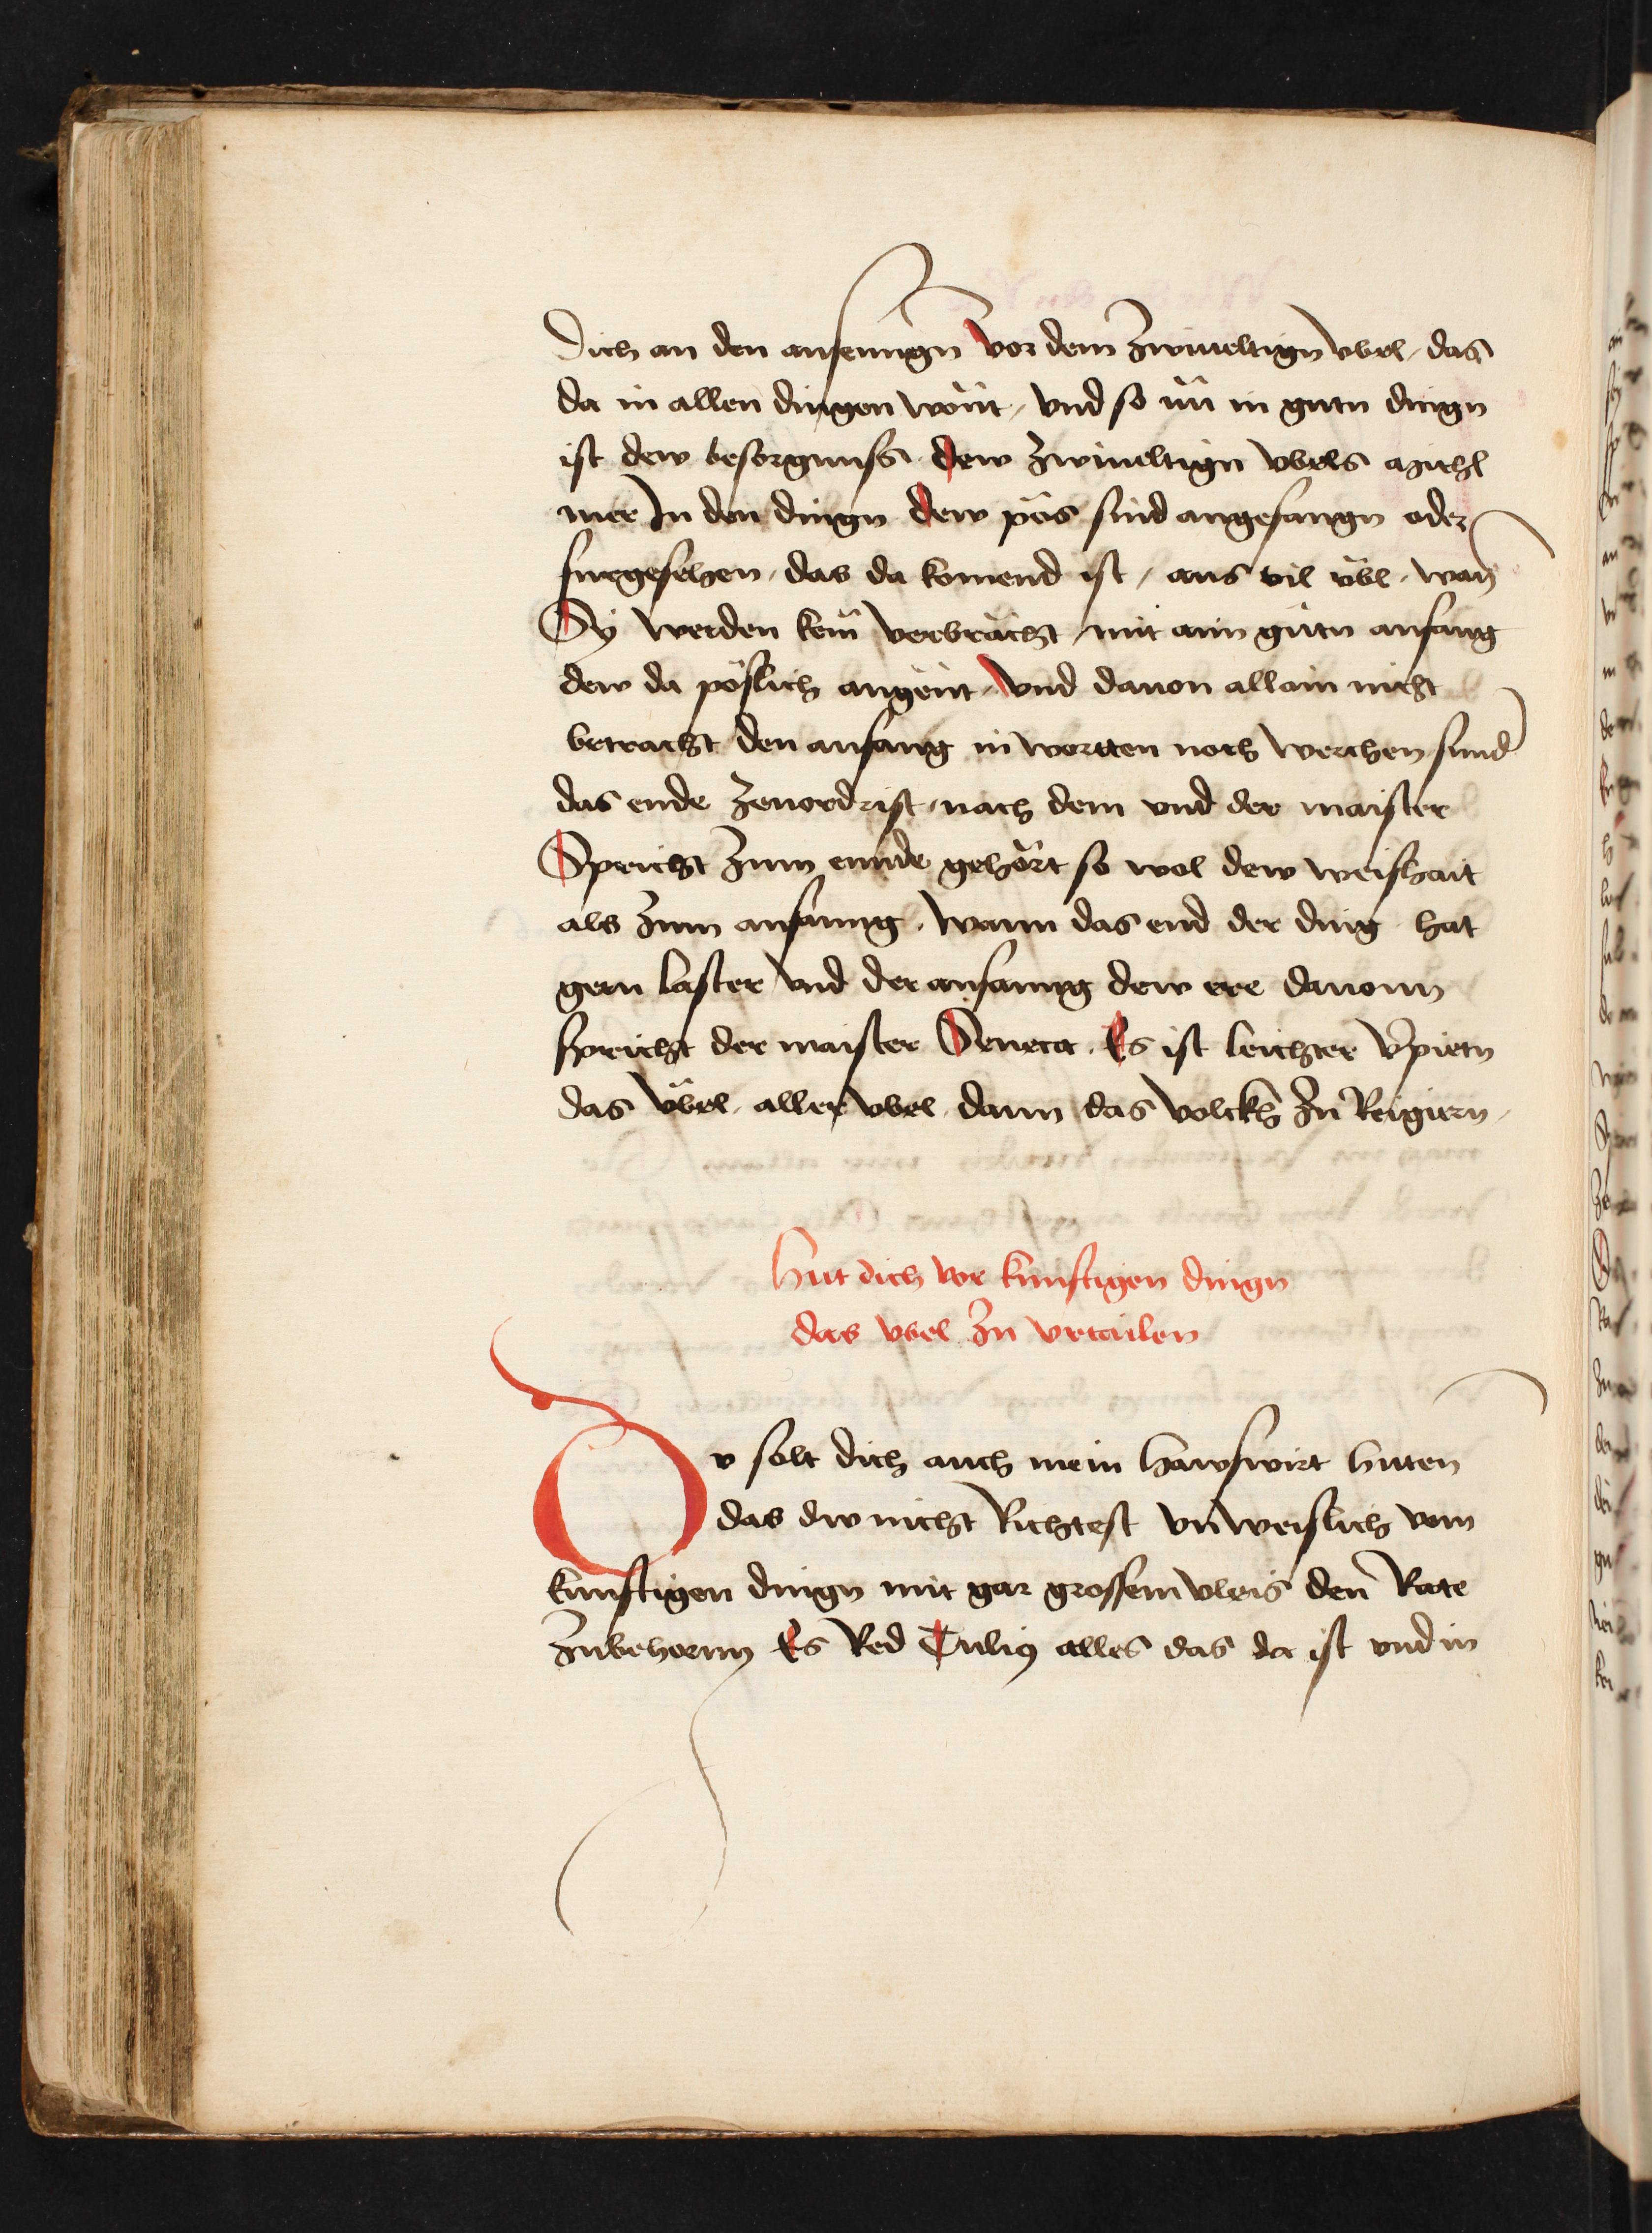 Dich an den anfenngn̄ vor dem Zwiueltign vbel, das
da in allen dingen wont, vnd so nu in gutn dingn
ist dew besorgnuss dew zwiueltign vbels
mer In den dingn dew pös sind angefangn oder
furgesehen, das da komend ist, aus vil vbl, wan̄
Sy werden kein verbracht mit aim gutn anfang
dew da pöslich angent, vnd dauon allain nicht
betracht den anfang in wortten noch werchen sund
das ende zeuordrist, nach dem vnd der maister
Spricht Zum ennde gehört so wol dew weishait
als Zum anfanng, wann das end der ding hat
gern laster vnd der anfanng dew ere dauonn
Spricht der maister Seneca. Es ist leichter v̄pietn
das vbel, aller vbel dann das volckh Zu Regiern
Hut dich vor kunftigen dingn
das vbel Zu vrtailen
Dv solt dich auch mein hawswirt huten
das dw nicht Richtest vnweislich vom
kunftigen dingn mit gar grossem vleis den Rate
Zubehornn Es Red Tulius alles das da ist vnd in